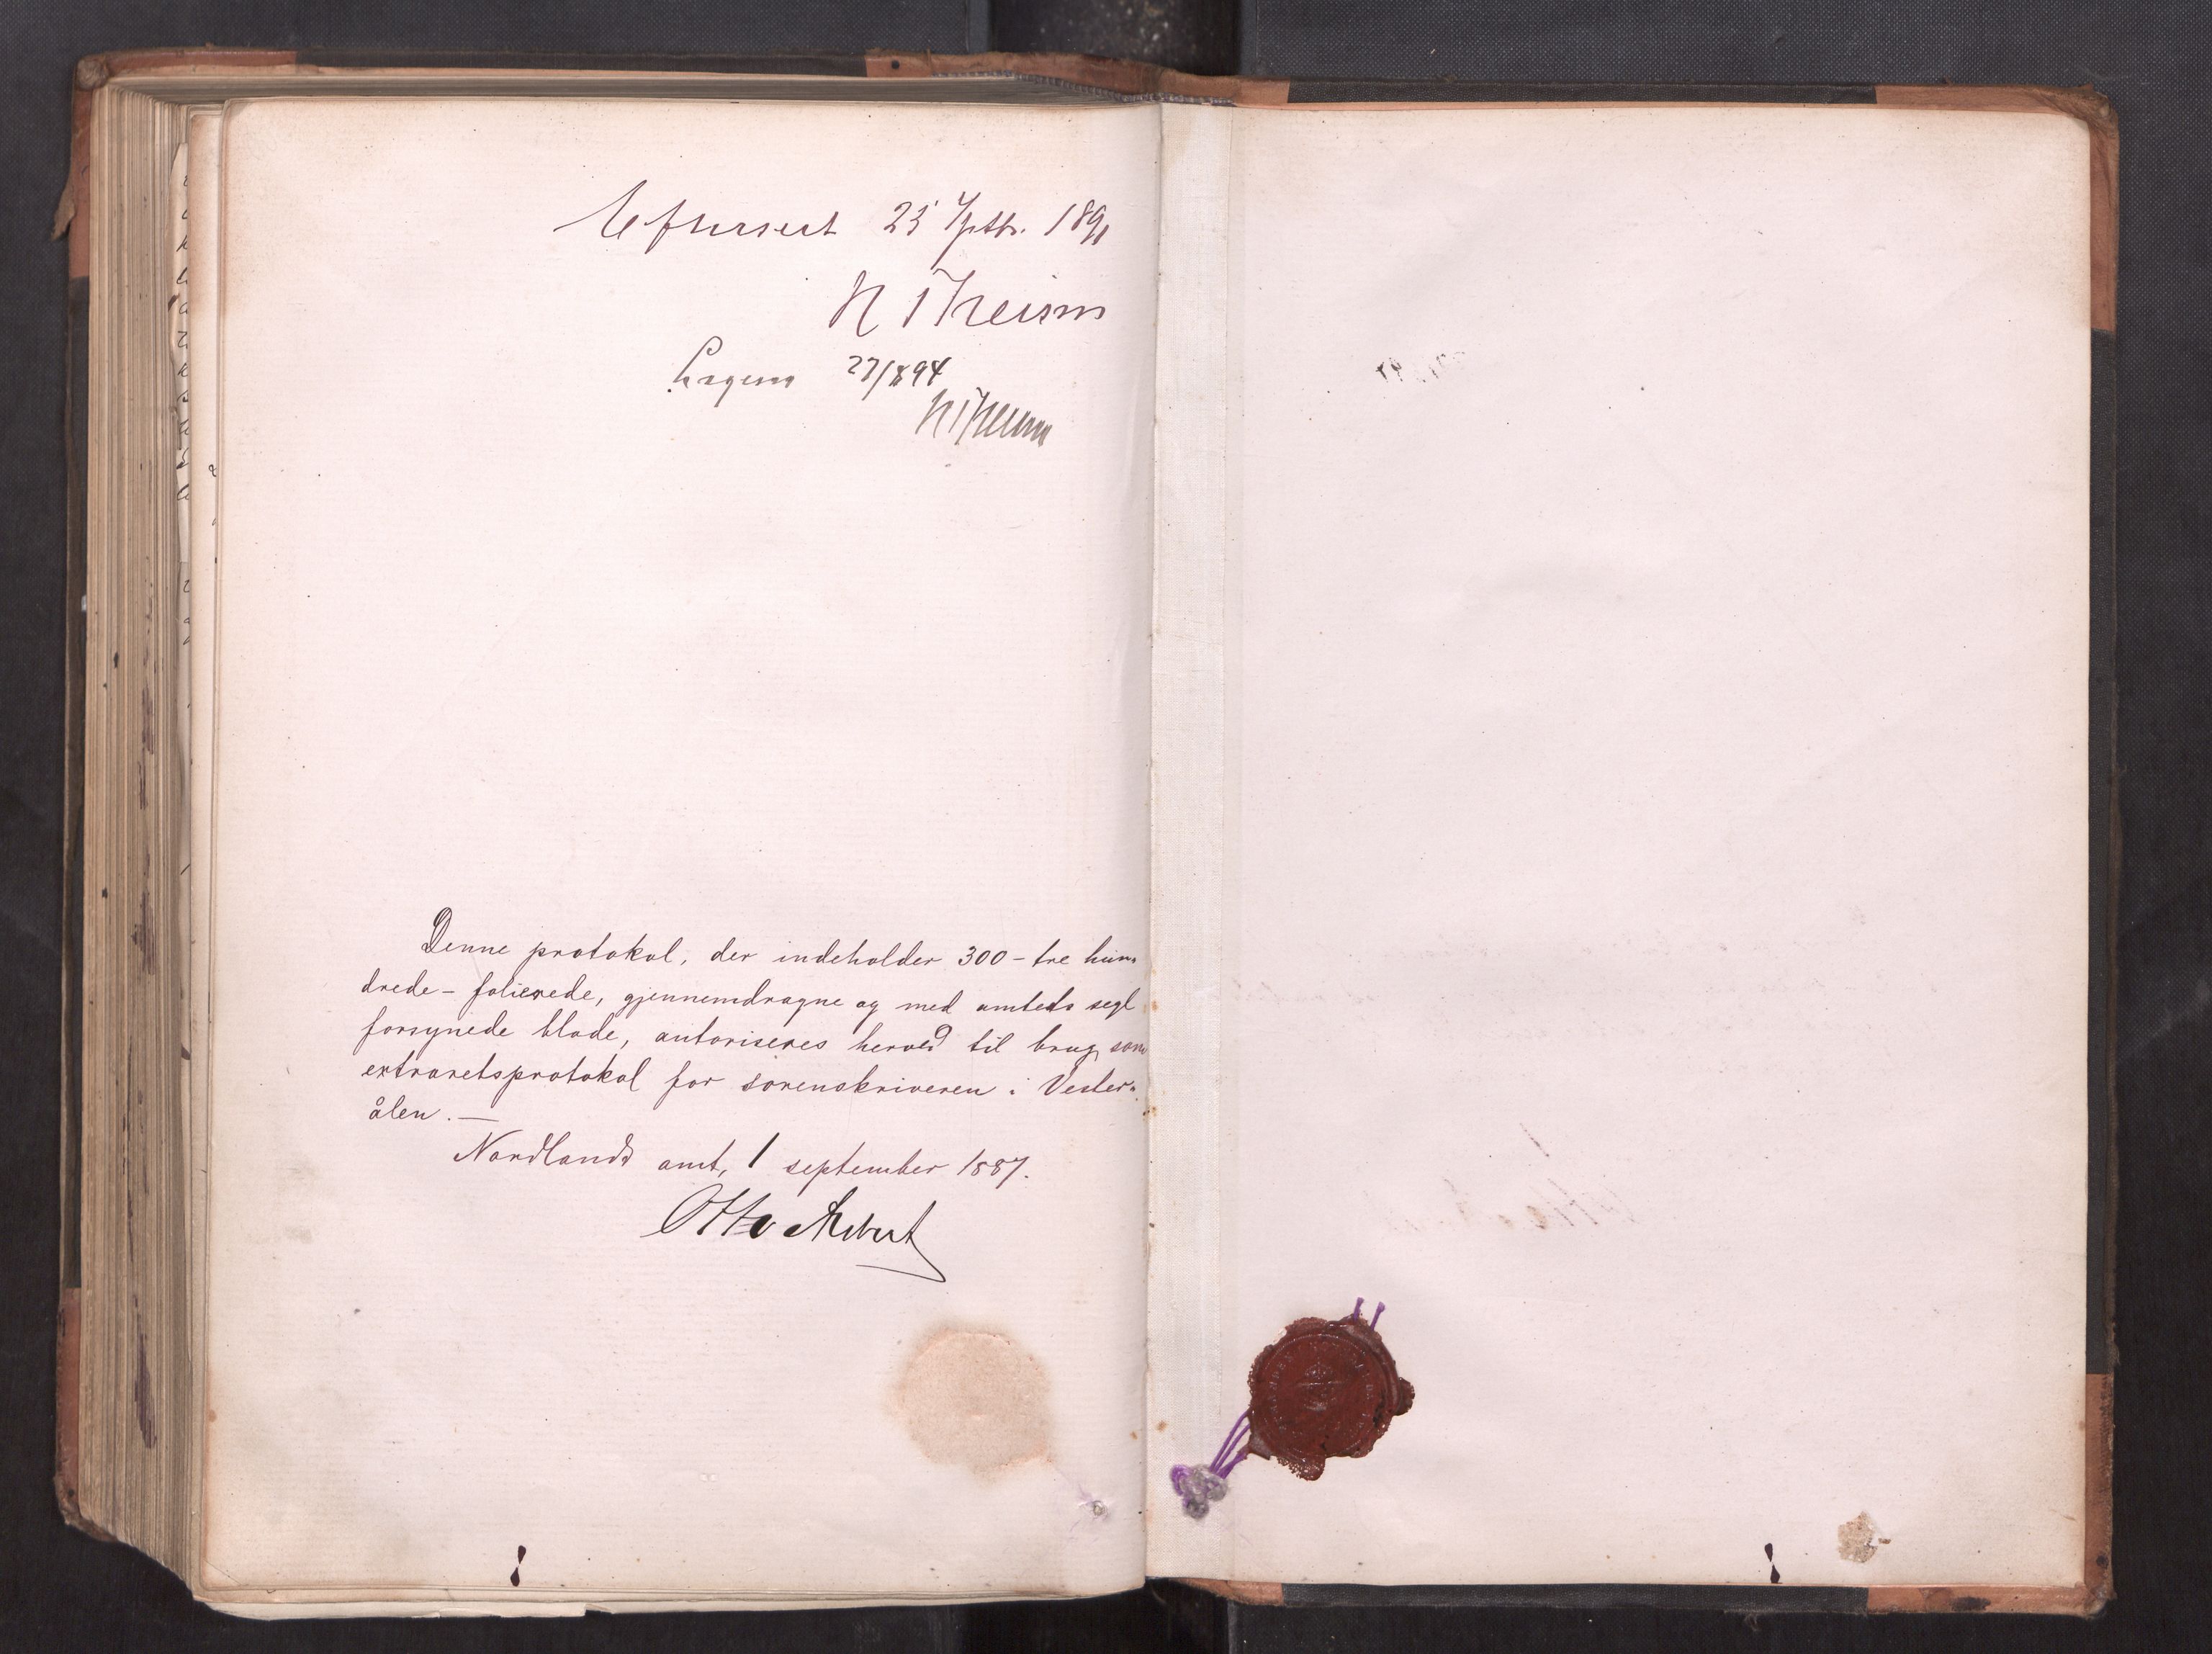 Efterseet 25 Septbr. 1891
N S Theisen
Ligesaa 27/8 94
Denne protokol, der indeholder 300 - tre hun-
drede - folierede, gjennemdragne og med amtets segl
forsynede blade, autoriseres herved til brug som
extraretsprotokol for sorenskriveren i Vester-
ålen. —
Nordlands amt, 1 september 1887.
Otto